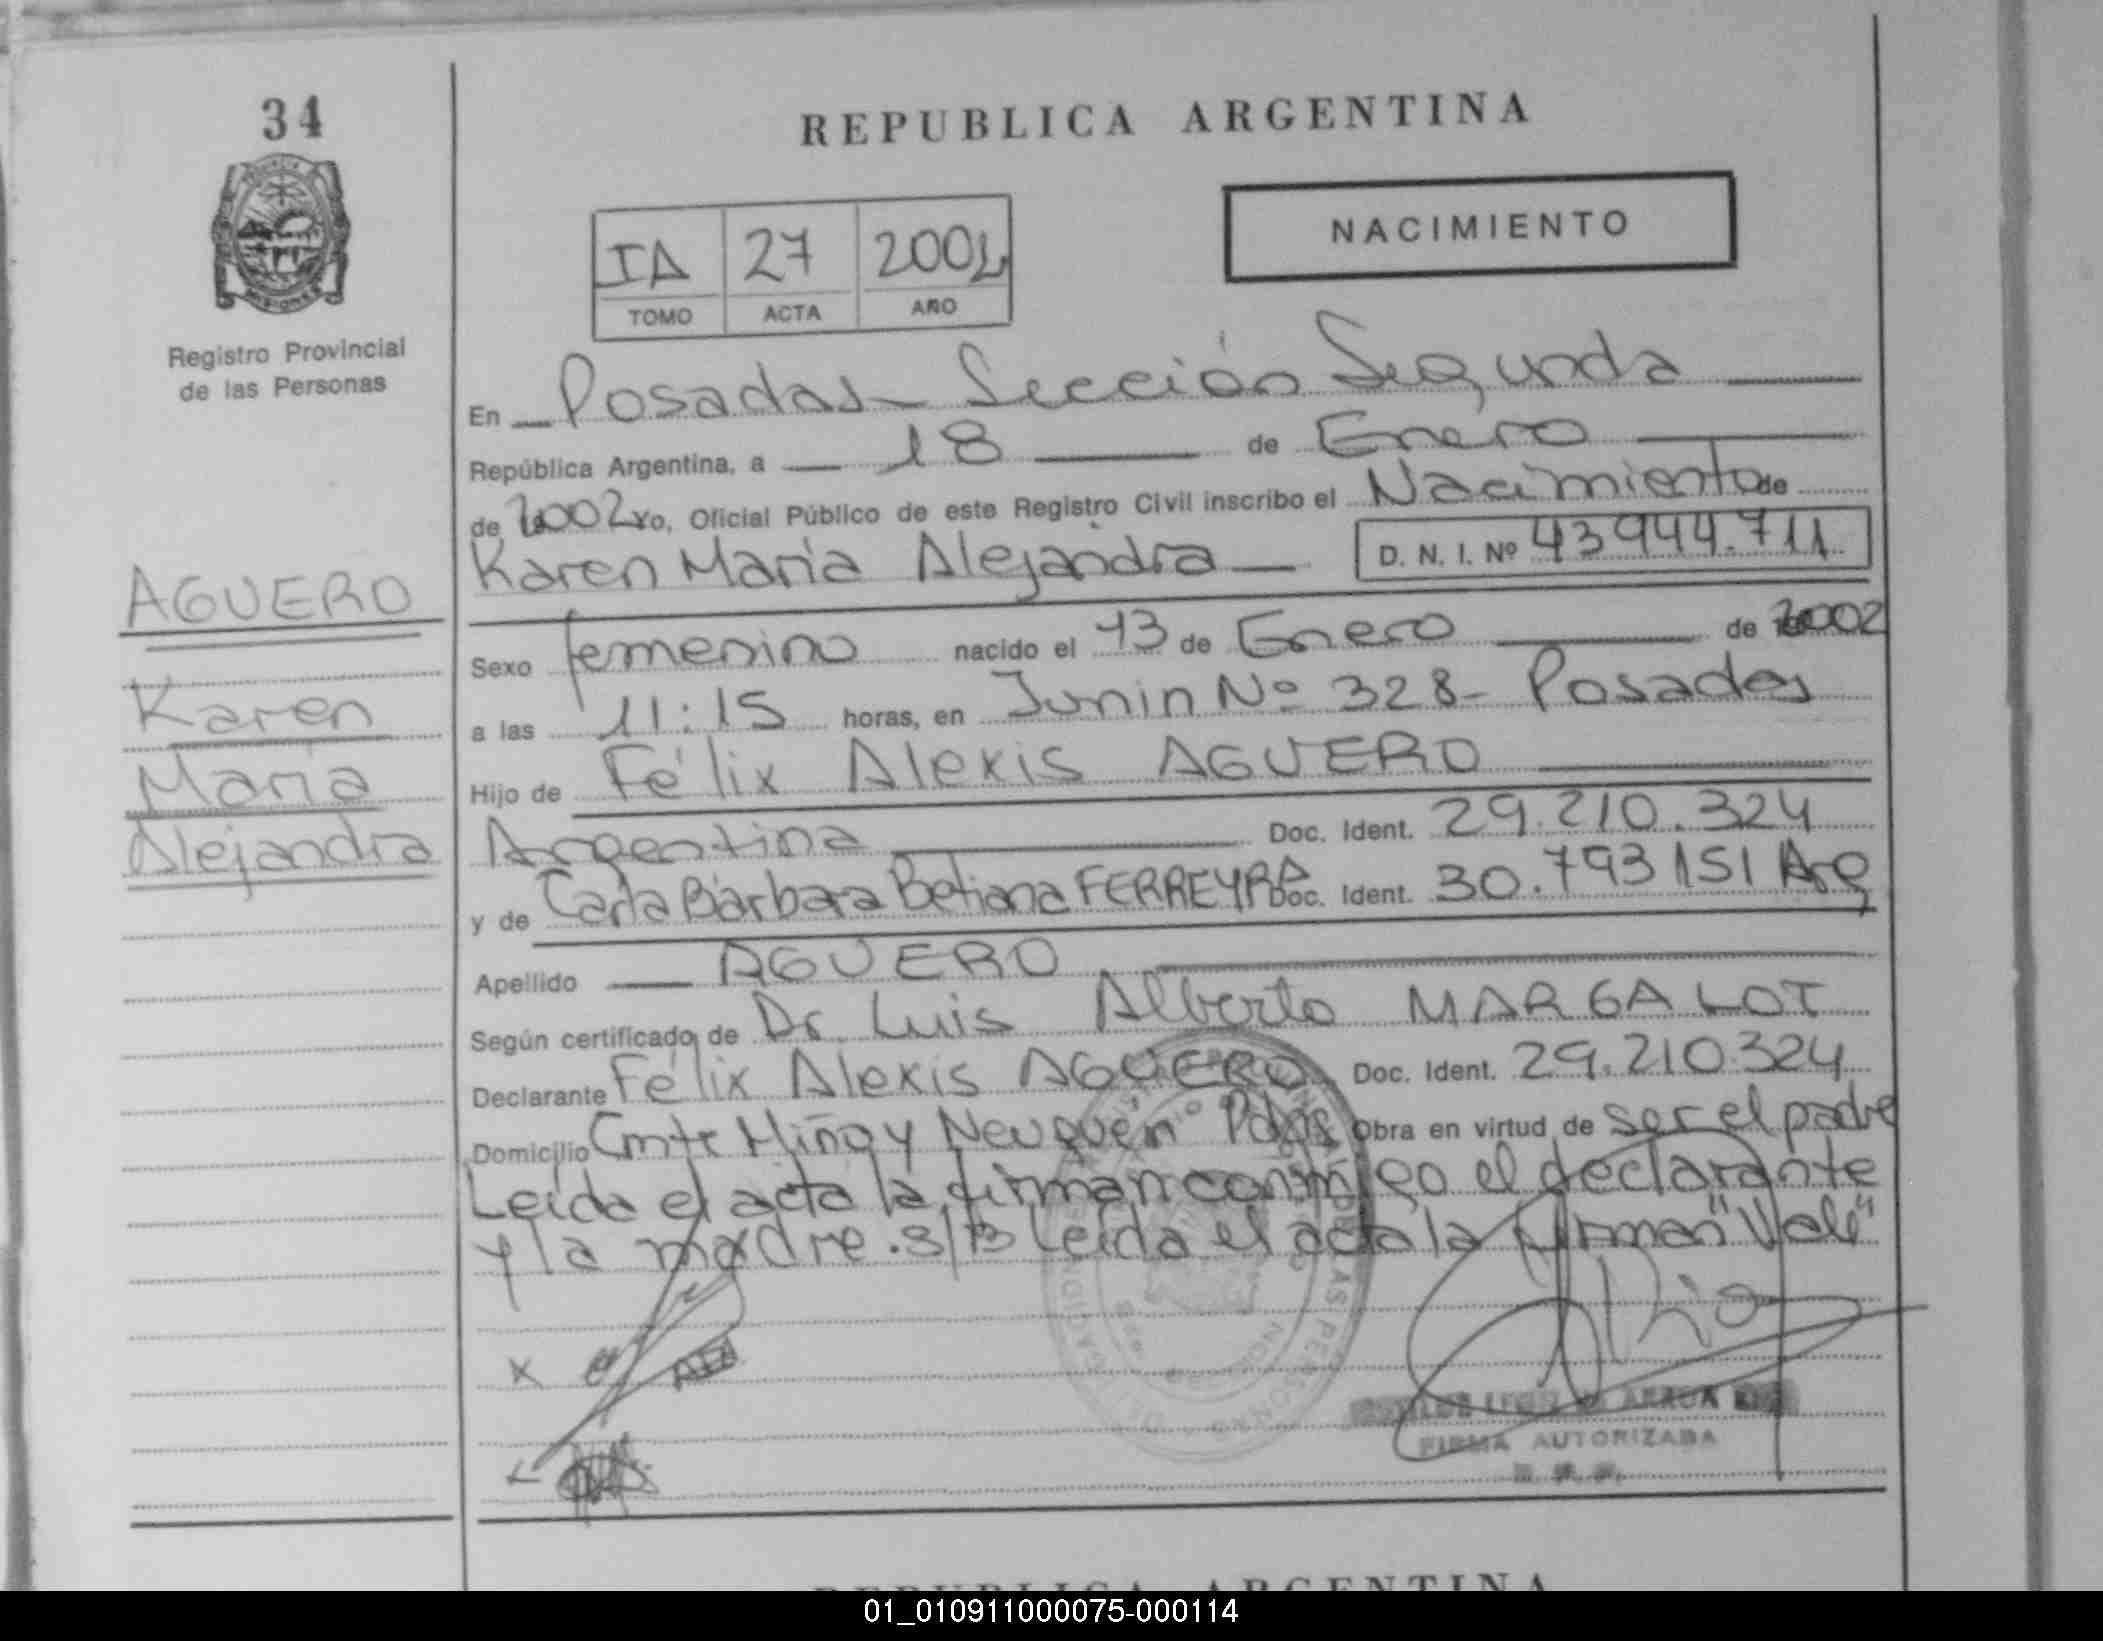 34
REPUBLICA ARGENTINA
NACIMIENTO
IA 27 2002
TOMO ACTA AÑO
Registro Provincial
de las Personas
En Posadas - Sección Segunda
República Argentina, a 18 de Enero
de 2002 yo, Oficial Público de este Registro Civil inscribo el Nacimiento de
Karen María Alejandra D. N. I. Nº 43944.711
AGUERO
Karen
María
Alejandra
Sexo femenino nacido el 13 de Enero de 2002
a las 11:15 horas, en Junin Nº 328 - Posadas
Hijo de Félix Alexis AGUERO
Argentina Doc. Ident. 29.210.324
y de Carla Bárbara Betiana FERREYRA Doc. Ident. 30.793 151 Arg
Apellido AGUERO
Según certificado de Dr Luis Alberto MARGALOT
Declarante Félix Alexis AGUERO Doc. Ident. 29.210.324
Domicilio Cmte Miño y Neuquén Pdas Obra en virtud de ser el padre
Leída el acta la firman conmigo el declarante
y la madre. S/B Leída el acta la firman "Vale"
X
FIRMA AUTORIZADA
REPUBLICA ARGENTINA
01_010911000075-000114